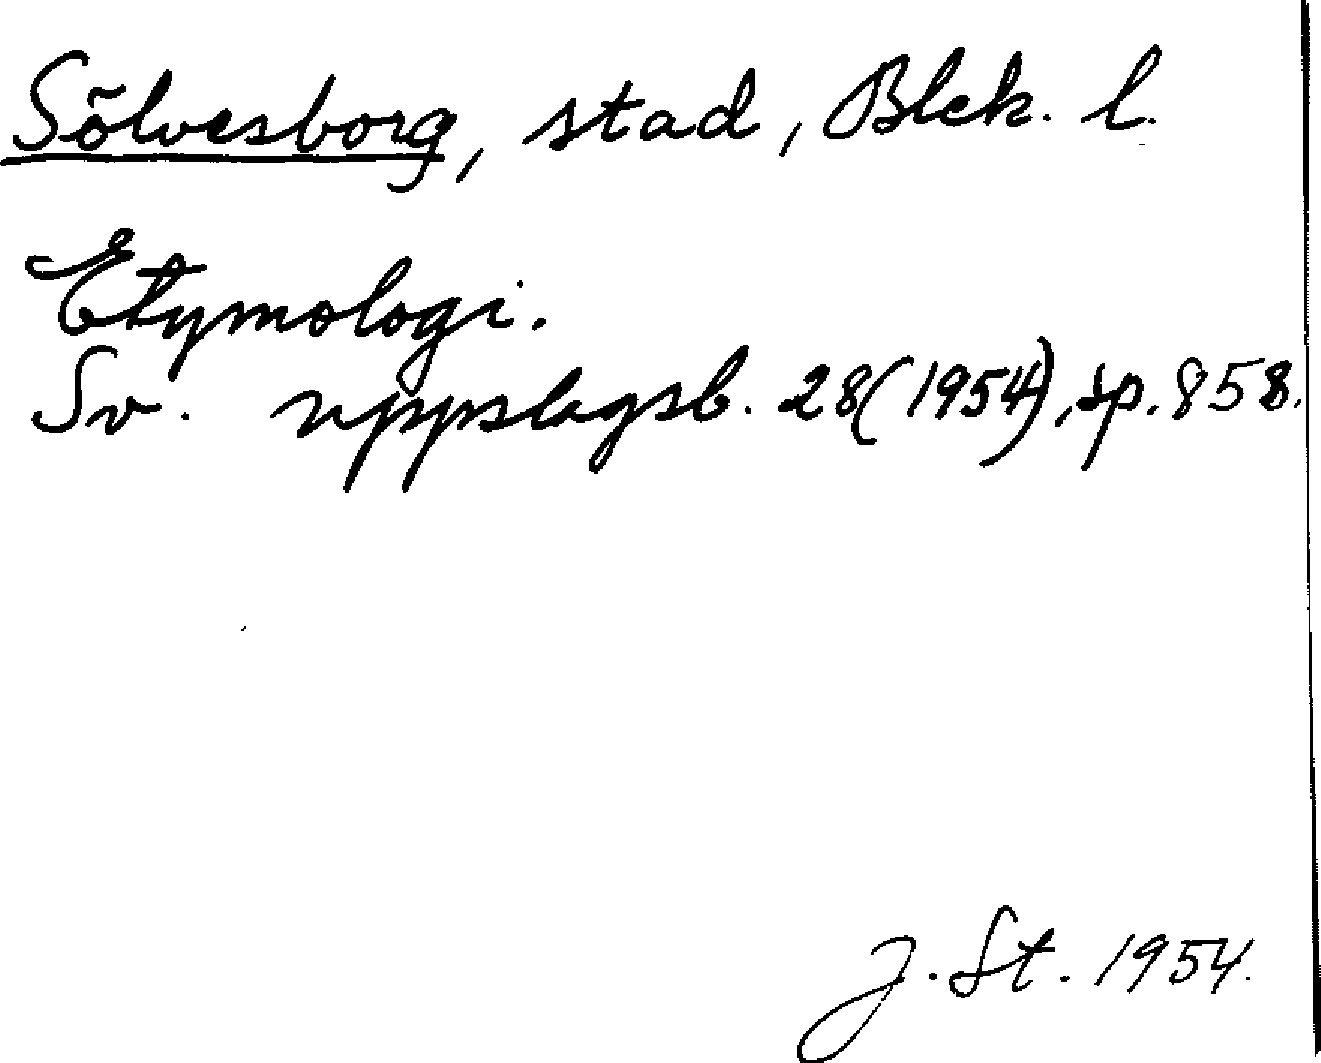 Sölvesborg, stad, Blek. l.
Etymologi.
Sv. uppslagsb. 28 (1954), sp. 858.
J. St. 1954.